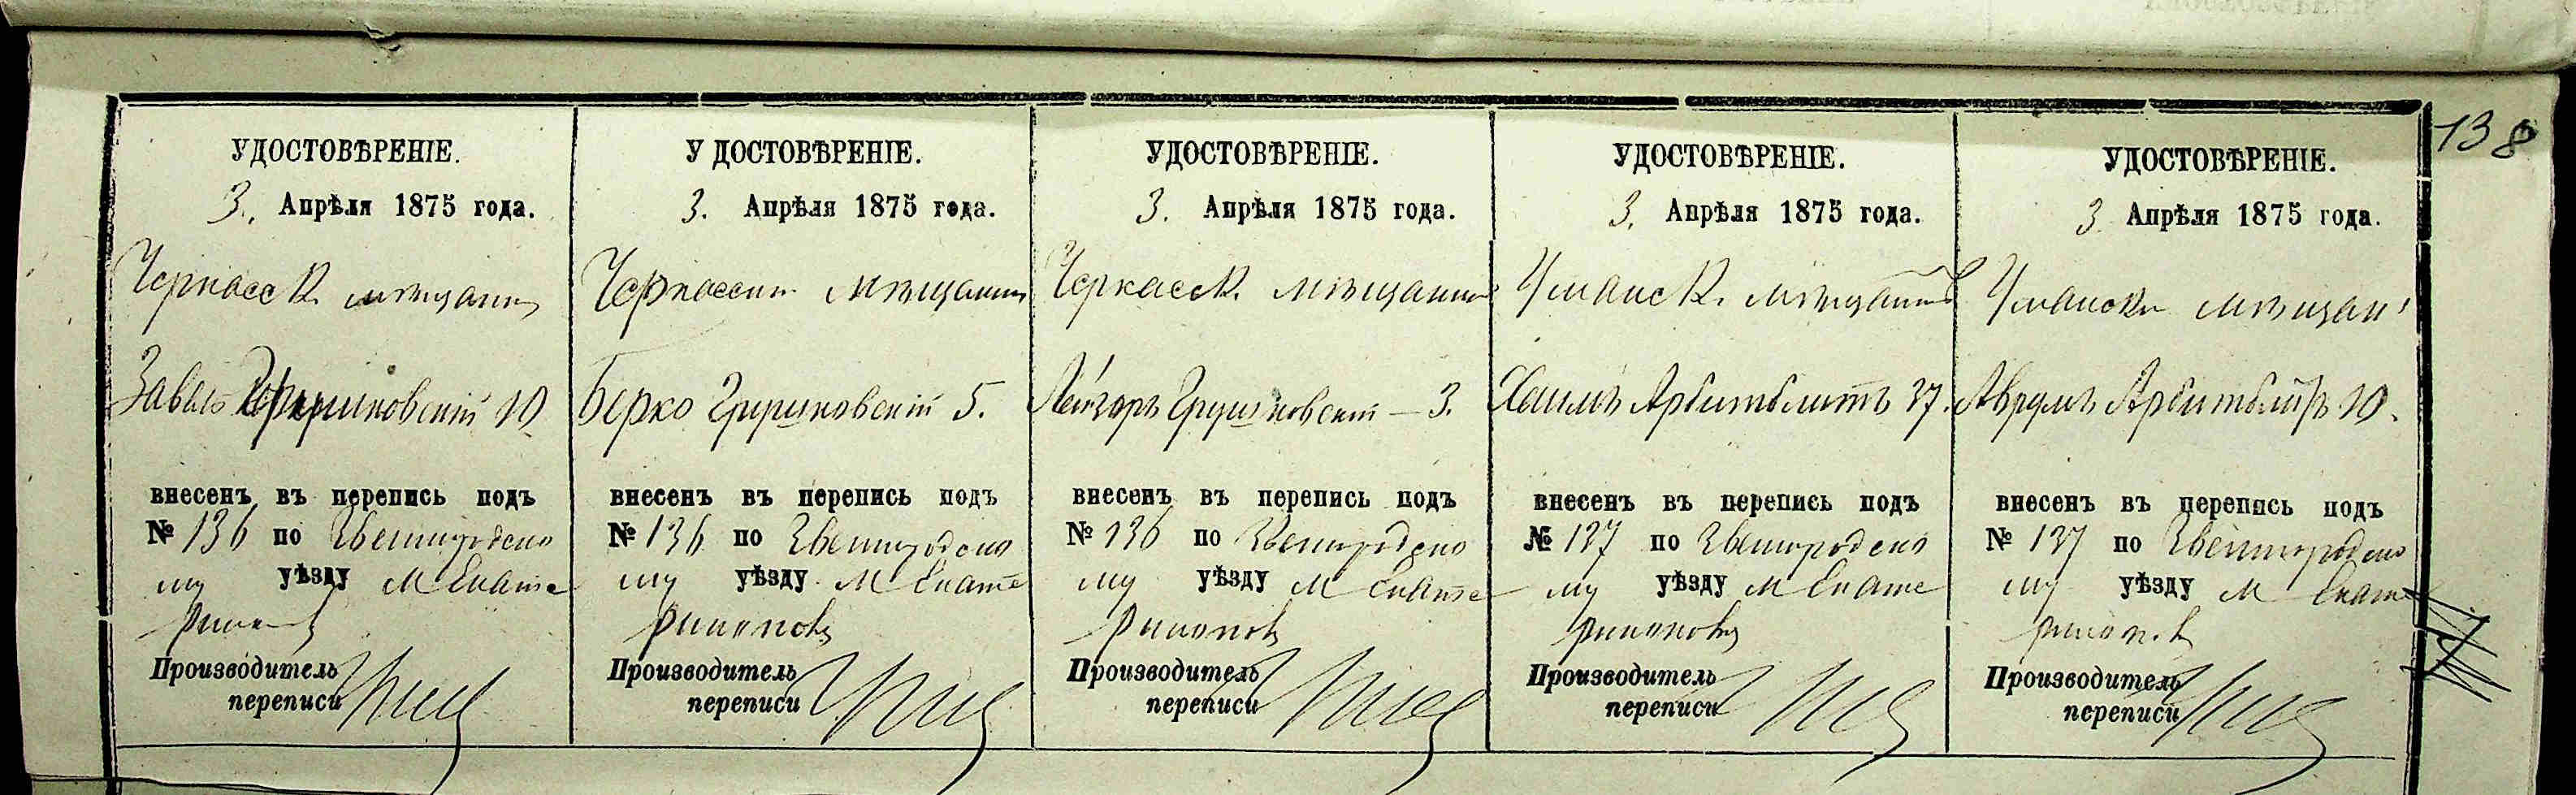 138
УДОСТОВѢРЕНІЕ.
3. Апрѣля 1875 года.
Черкасск. мѣщанинъ
Завель Грушковскій 10
внесенъ въ перепись подъ
№ 136 по Звенигородско
му уѣзду М Екате
Производитель
переписи
УДОСТОВѢРЕНІЕ.
3. Апрѣля 1875 года.
Черкасскій мѣщанинъ
Берко Грушковскій 5.
внесенъ въ перепись подъ
№ 136 по Звенигородско
му уѣзду М Екате
ринополь
Производитель
переписи
УДОСТОВѢРЕНІЕ.
3. Апрѣля 1875 года.
Черкасск. мѣщанинъ
Лейзоръ Грушковскій — 3.
внесенъ въ перепись подъ
№ 136 по Звенигородско
му уѣзду М Екате
ринополь
Производитель
переписи
УДОСТОВѢРЕНІЕ.
3. Апрѣля 1875 года.
Уманск. мѣщанинъ
Хаимъ Арбитблитъ 37.
внесенъ въ перепись подъ
№ 137 по Звенигородско
му уѣзду М Екате
ринополь
Производитель
переписи
УДОСТОВѢРЕНІЕ.
3 Апрѣля 1875 года.
Уманскій мѣщан
Аврумъ Арбитблитъ 10.
внесенъ въ перепись подъ
№ 137 по Звенигородско
му уѣзду М Екате
ринополь
Производитель
переписи